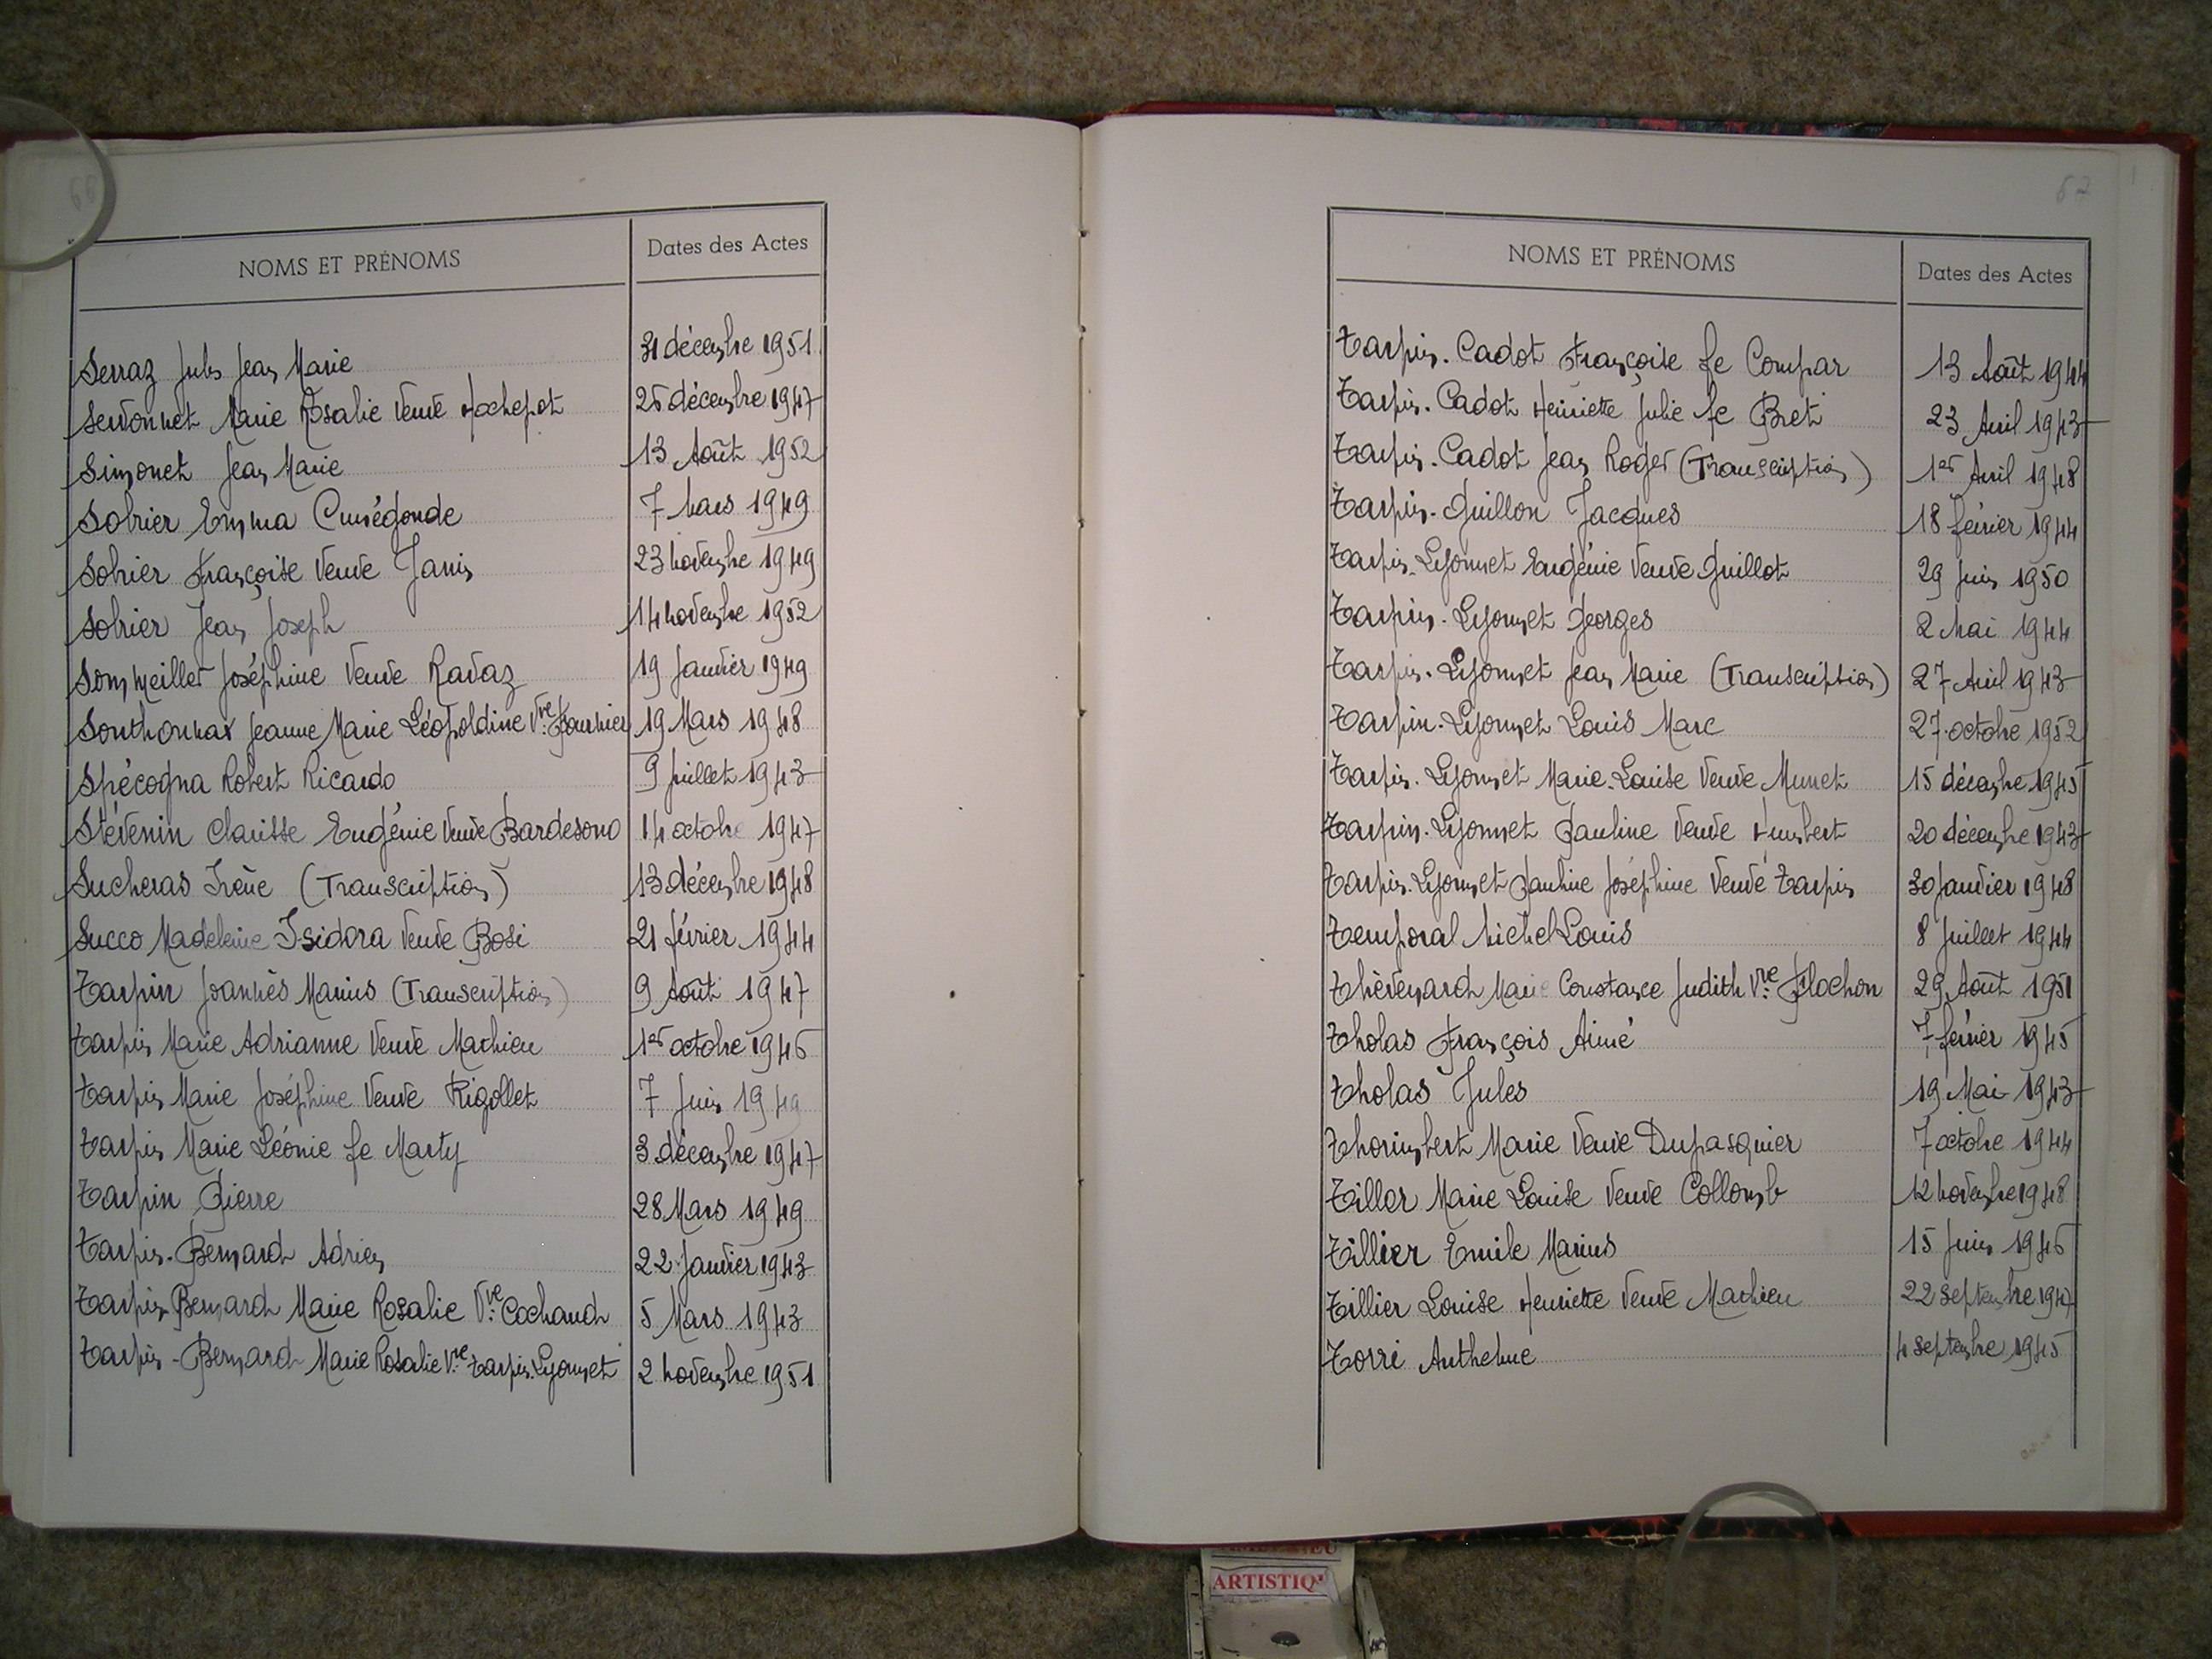 66
NOMS ET PRÉNOMS
Dates des Actes
Serraz Jules Jean Marie 31 décembre 1951
Servonnet Marie Rosalie Veuve Hochepot 26 décembre 1947
Simonet Jean Marie 13 Août 1952
Sohier Emma Cunégonde 7 Mars 1949
Sohier Françoise Veuve Janin 23 novembre 1949
Sohier Jean Joseph 14 novembre 1952
Sommeiller Joséphine Veuve Ravaz 19 Janvier 1949
Southonnax Jeanne Marie Léopoldine Vve Fournier 19 Mars 1948
Spécogna Robert Ricardo 9 Juillet 1943
Stévenin Clarisse Eugénie Veuve Bardesono 14 octobre 1947
Sucheras Irène (Transcription) 13 décembre 1948
Succo Madeleine Isidora Veuve Bosi 21 février 1944
Tarpin Joannès Marius (Transcription) 9 Août 1947
Tarpin Marie Adrianne Veuve Mathieu 1er octobre 1946
Tarpin Marie Joséphine Veuve Rigollet 7 Juin 1949
Tarpin Marie Léonie fe Marty 3 décembre 1947
Tarpin Pierre 28 Mars 1949
Tarpin-Bernard Adrien 22 Janvier 1943
Tarpin-Bernard Marie Rosalie Vve Cochaud 5 Mars 1943
Tarpin-Bernard Marie Rosalie Vve Tarpin-Lyonnet 2 novembre 1951
67
NOMS ET PRÉNOMS
Dates des Actes
Tarpin-Cadot Françoise fe Compar 13 Août 1944
Tarpin-Cadot Henriette Julie fe Bret 23 Avril 1943
Tarpin-Cadot Jean Roger (Transcription) 1er Avril 1948
Tarpin-Guillon Jacques 18 février 1944
Tarpin-Lyonnet Eugénie Veuve Guillot 29 Juin 1950
Tarpin-Lyonnet Georges 2 Mai 1944
Tarpin-Lyonnet Jean Marie (Transcription) 27 Avril 1943
Tarpin-Lyonnet Louis Marc 27 octobre 1952
Tarpin-Lyonnet Marie-Louise Veuve Munet 15 décembre 1945
Tarpin-Lyonnet Pauline Veuve Humbert 20 décembre 1943
Tarpin-Lyonnet Pauline Joséphine Veuve Tarpin 30 Janvier 1948
Temporal Michel Louis 8 Juillet 1944
Thèvenard Marie Constance Judith Vve Flochon 29 Août 1951
Tholas François Aimé 7 février 1945
Tholas Jules 19 Mai 1943
Thorimbert Marie Veuve Dupasquier 7 octobre 1944
Tiller Marie Louise Veuve Collomb 12 novembre 1948
Tillier Emile Marius 15 Juin 1946
Tillier Louise Henriette Veuve Mathieu 22 septembre 1947
Torri Anthelme 4 septembre 1945
ARTISTIQ